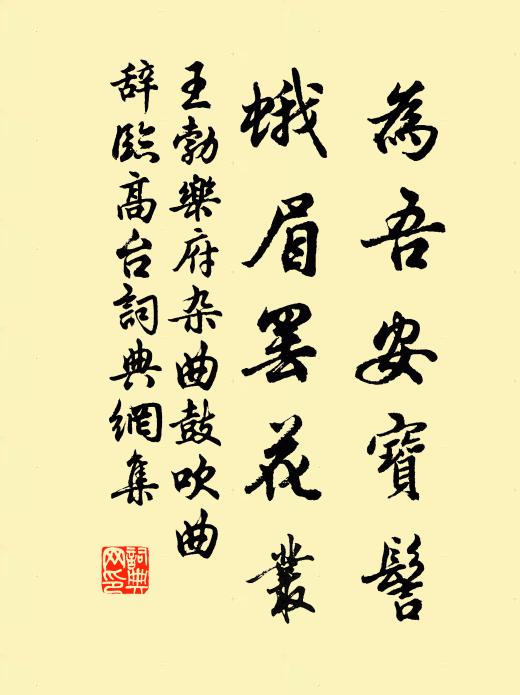 為吾安寶髻
蛾眉罷花叢
王勃樂府杂曲鼓吹曲
辞臨高台詞典網集
詞典网印